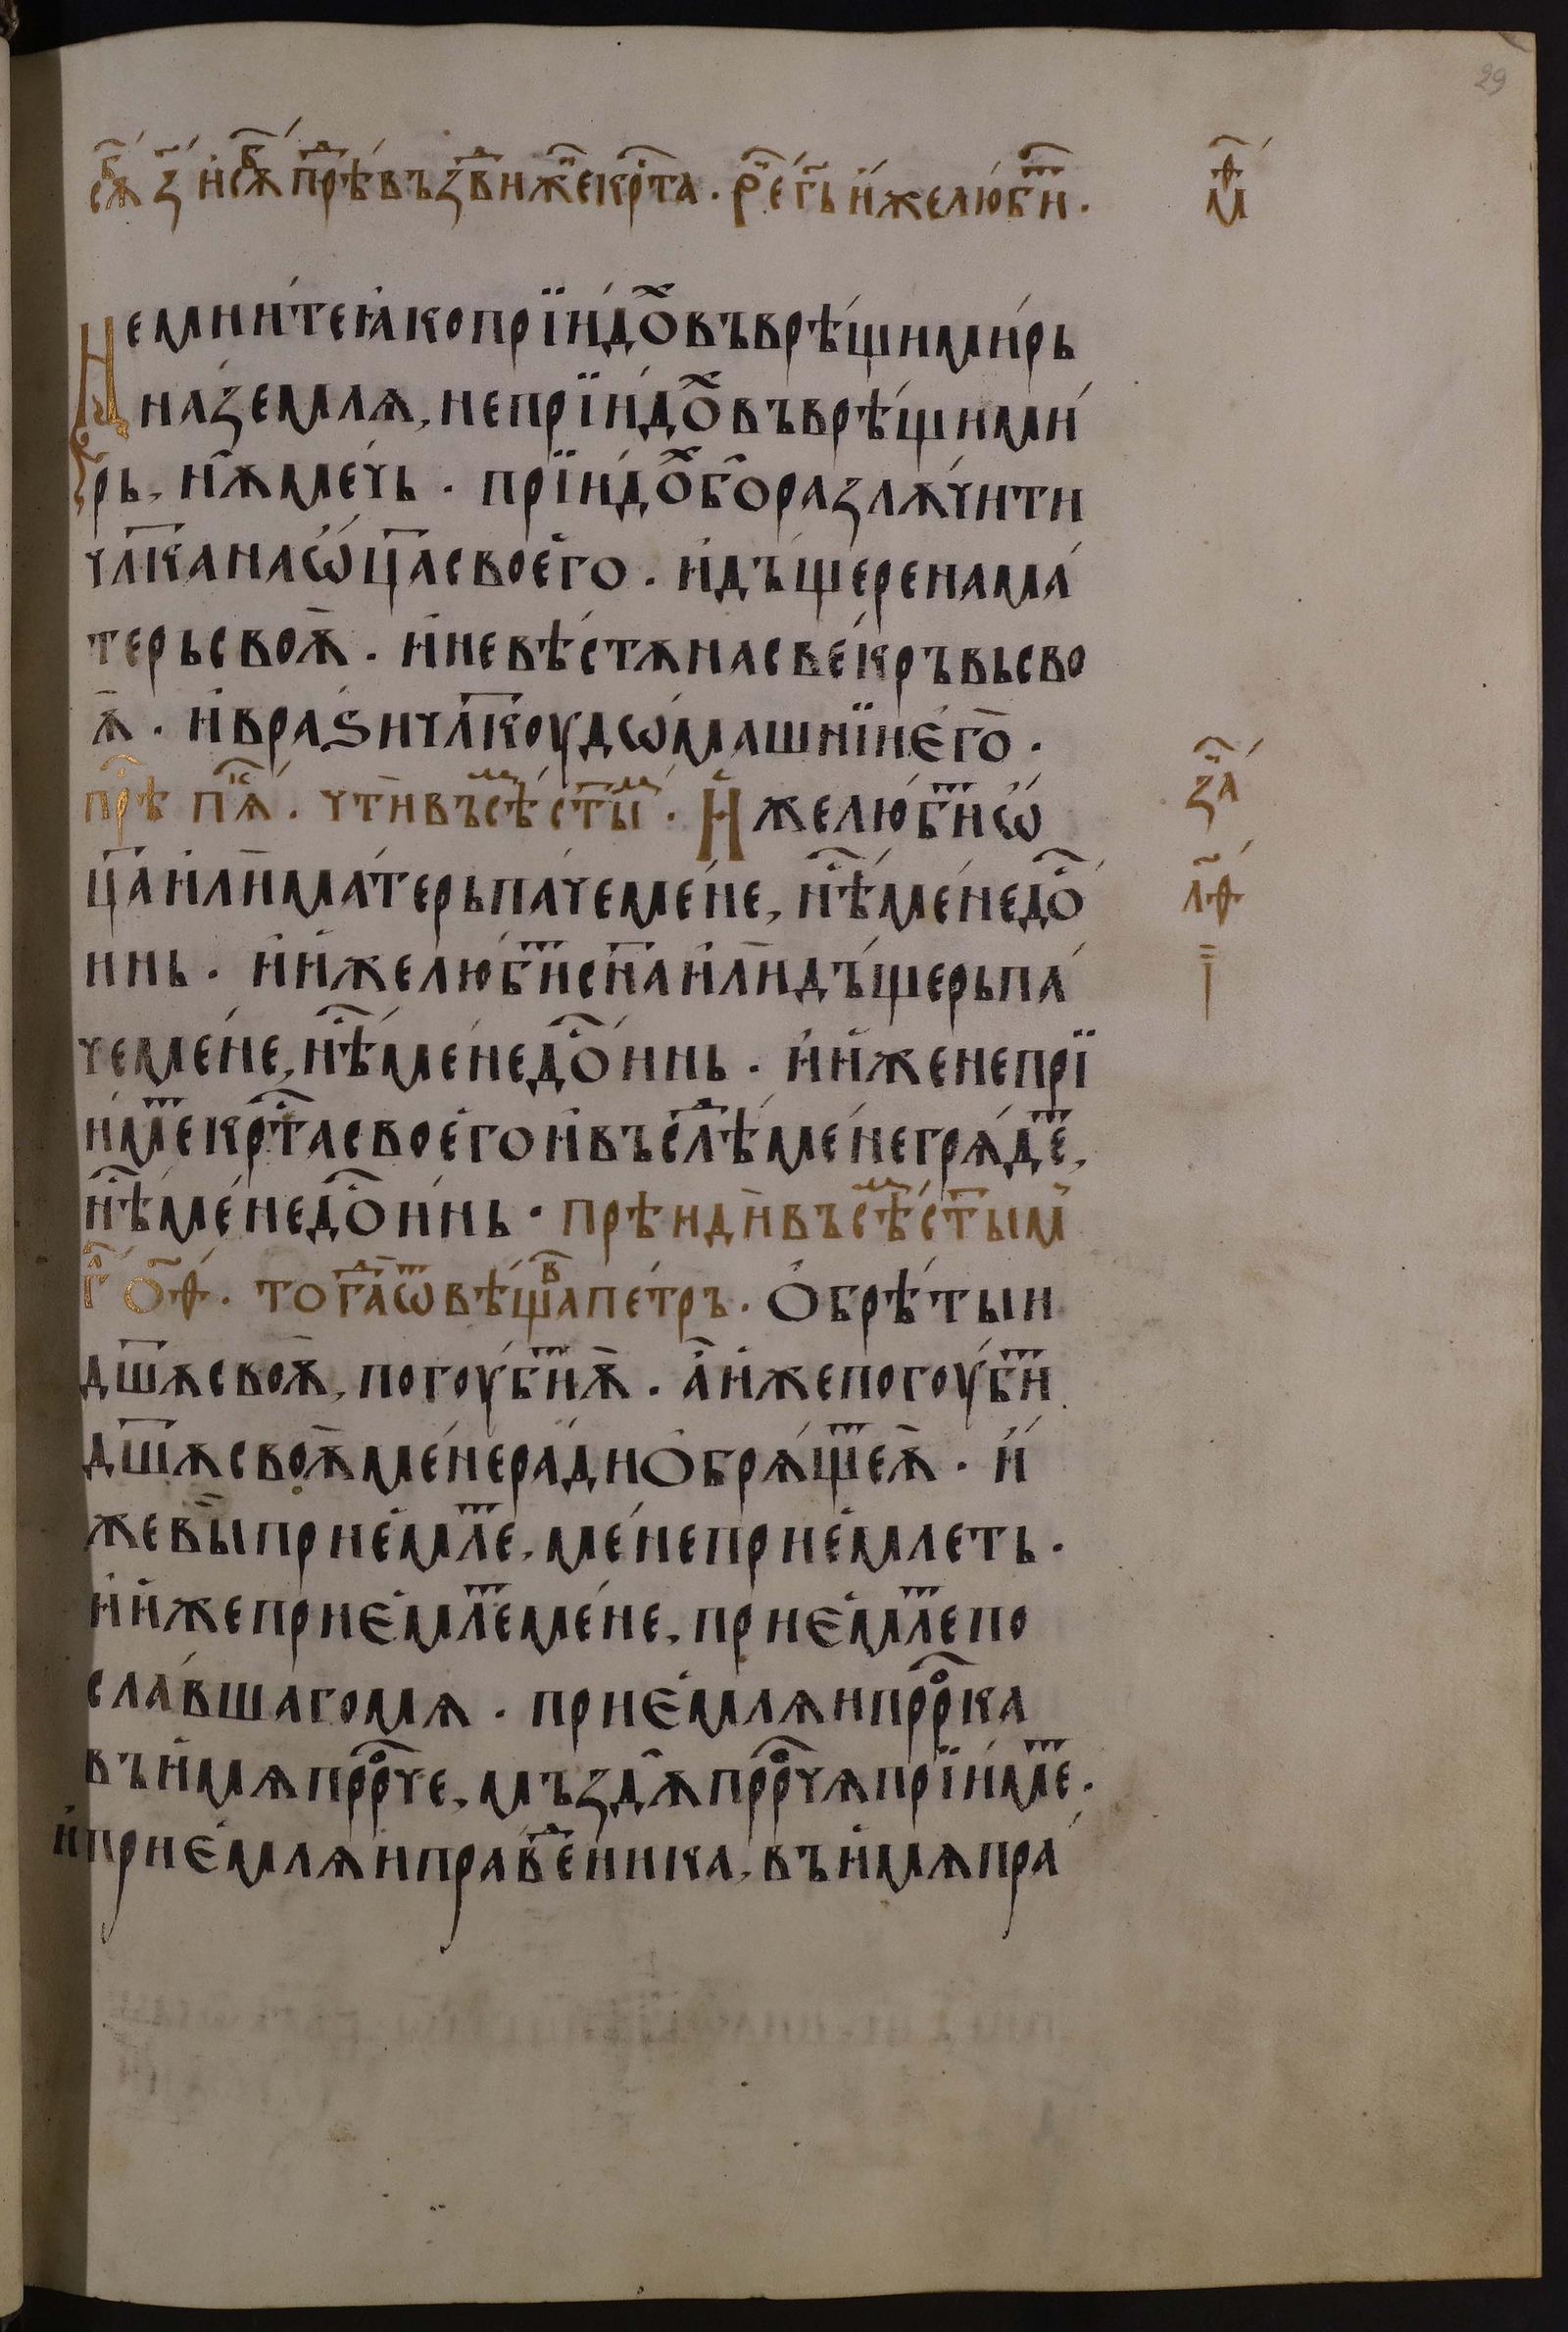 29
сѫⷠ҇ з҃ и҆ сѫⷠ҇ прѣⷣ въ зⷣвиже крⷭ҇та . Рⷱ҇е гь и҆же люби҆ⷮ .
м҃ꙁ
Не мните ꙗ҆ко прїидоⷯ въврѣщи мирь
на землѫ, не прїидоⷯ въврѣщи ми
рь, нѫ мечь . прїидоⷯ бо разлѫчити
чл҃ка на ѿц҃а своего . и҆ дъщере на ма
терь своѫ . и҆ невѣстѫ на свекръвь сво
ѫ . и҆ враѕи чл҃коу дѡмашнїи е҆го .
прѣⷭ҇ пѧⷦ҇ . чти въсѣⷨ ст҃ыⷨ . И҆же любиⷮ ѿ
за҃
ц҃а и҆ли матерь паче мене, нѣⷭ҇ мене доⷭ҇
л҃ꙁ
инь . и҆ и҆же любиⷮ сн҃а и҆ли дъщерь па
і
че мене, нѣⷭ҇ мене доⷭ҇инь . и҆ и҆же не прї
имеⷮ крⷭ҇та своего и҆ въ слѣⷣ мене грѧдеⷮ,
нѣⷭ҇ мене доⷭ҇инь . прѣиди въсѣⷨ ст҃ымⸯ
гⷧ҇ о҃ꙁ . тогⷣа ѿⷮвѣщавⷡ петръ . Обрѣтыи
дш҃ѫ своѫ, погоубиⷮ ѫ . а҆ и҆же погоубиⷮ
дш҃ѫ своѫ мене ради обрѧщеⷮ ѫ . и҆
же вы приемлеⷮ, мене приемлеть .
и҆ и҆же приемлеⷮ мене, приемлеⷮ по
славшаго мѧ . приемлѧи прⷪ҇рка
въ и҆мѧ прⷪ҇рче, мъздѫ прⷪ҇рчѫ прїимеⷮ .
и҆ приемлѧи правеⷣника, въ и҆мѧ пра